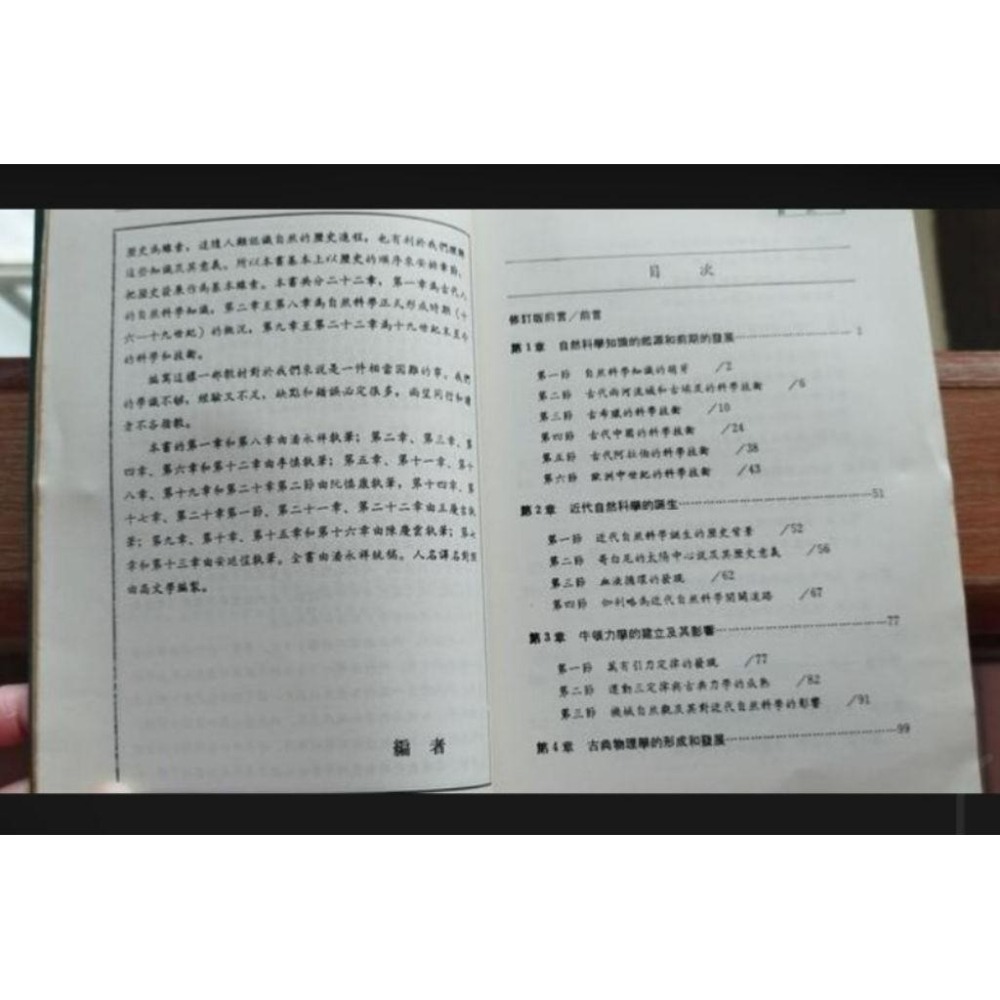 歷史為線索，這達人類認識自然的歷史進程，也有利於我們理解
這些知識及其意義。所以本書基本上以歷史的順序來安排章節，
把歷史發展作為基本線索。本書共分二十二章，第一章為古代人
的自然科學知識，第二章至第八章為自然科學正式形成時期（十
六—十九世紀）的概況，第九章至第二十二章為十九世紀末至今
的科學和技術。
編寫這樣一部教材對於我們來說是一件相當困難的事。我們
的學識不够，經驗又不足，缺點和錯誤必定很多，尚望同行和讀
者不吝指教。
本書的第一章和第八章由潘永祥執筆；第二章、第三章、第
四章、第六章和第十二章由李慎執筆；第五章、第十一章、第十
八章、第十九章和第二十章第二節由阮慎康執筆，第十四章、第
十七章、第二十章第一節、第二十一章、第二十二章由王慶吉執
筆；第九章、第十章、第十五章和第十六章由陳慶雲執筆；第七
章和第十三章由安延愷執筆。全書由潘永祥統稿。人名譯名對照
由高文學編製。
編 者
目 次
修訂版前言／前言
第1章 自然科學知識的起源和前期的發展 1
第一節 自然科學知識的萌芽 /2
第二節 古代兩河流域和古埃及的科學技術 /6
第三節 古希臘的科學技術 /10
第四節 古代中國的科學技術 /24
第五節 古代阿拉伯的科學技術 /38
第六節 歐洲中世紀的科學技術 /43
第2章 近代自然科學的誕生 51
第一節 近代自然科學誕生的歷史背景 /52
第二節 哥白尼的太陽中心說及其歷史意義 /56
第三節 血液循環的發現 /62
第四節 伽利略為近代自然科學開闢道路 /67
第3章 牛頓力學的建立及其影響 77
第一節 萬有引力定律的發現 /77
第二節 運動三定律與古典力學的成熟 /82
第三節 機械自然觀及其對近代自然科學的影響 /91
第4章 古典物理學的形成和發展 99